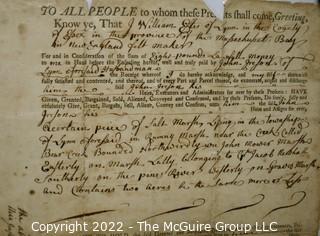 TO ALL PEOPLE to whom these Presents shall come, Greeting,
Know ye, That I William of Lynn in the County
of Essex in the province of the Massachusetts Bay
in New England Salt maker
For and in Consideration of the Sum of Eight Pounds Lawfull money
to me in Hand before the Ensealing hereof, well and truly paid by John
Lynn aforesaid husbandman
the Receipt whereof I do hereby acknowledge, and my self
fully satisfied and contented, and thereof, and of every Part and Parcel thereof, do exonerate, acquit and discharge
him the said John his
Heirs, Executors and Administrators for ever by these Presents: HAVE
Given, Granted, Bargained, Sold, Aliened, Conveyed and Confirmed, and by these Presents, Do freely, fully and
absolutely Give, Grant, Bargain, Sell, Aliene, Convey and Confirm, unto him the said John
his Heirs and Assigns for ever,
a certain piece of Salt Marsh Lying in the township
of Lynn aforesaid in Rumny Marsh near the Creek Called
Bear Creek Bounded Northwardly on John Marsh
Easterly on Marsh Latly belonging to Jacob
Southerly on the pines River Westerly on Marsh
and Contains two acres be the same more or less
© Copyright 2022 - The McGuire Group LLC